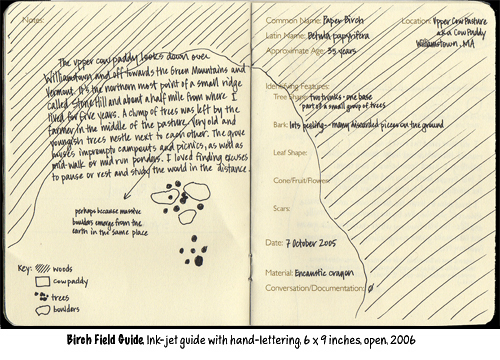 Notes:
The upper cow paddy looks down over
Williamstown and off towards the Green Mountains and
Vermont. It's the northern most point of a small ridge
called Stone Hill and about a half mile from where I
lived for five years. A clump of trees was left by the
farmer in the middle of the pasture. Very old and
youngish trees nestle next to each other. The grove
houses impromptu campouts and picnics, as well as
mid-walk or mid-run ponders. I loved finding excuses
to pause or rest and study the world in the distance.
perhaps because massive
boulders emerge from the
earth in the same place
Key: woods
cow paddy
trees
boulders
Common Name: Paper Birch
Latin Name: Betula papyrifera
Approximate Age: 35 years
Location: Upper Cow Pasture
a.k.a Cow Paddy
Williamstown, MA
Identifying Features:
Tree Shape: two trunks - one base
part of a small group of trees
Bark: lots peeling - many discarded pieces on the ground
Leaf Shape:
Cone/Fruit/Flower:
Scars:
Date: 7 October 2005
Material: Encaustic crayon
Conversation/Documentation: Ø
Birch Field Guide, Ink-jet guide with hand-lettering, 6 x 9 inches, open, 2006